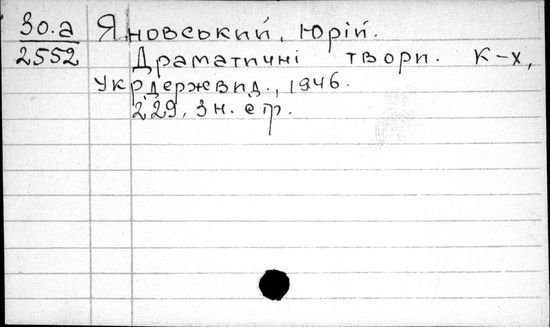 30.а
2552
Яновський, Юрій.
Драматичні твори. К-х,
Укрдержвид., 1946.
229, 3 н. стр.